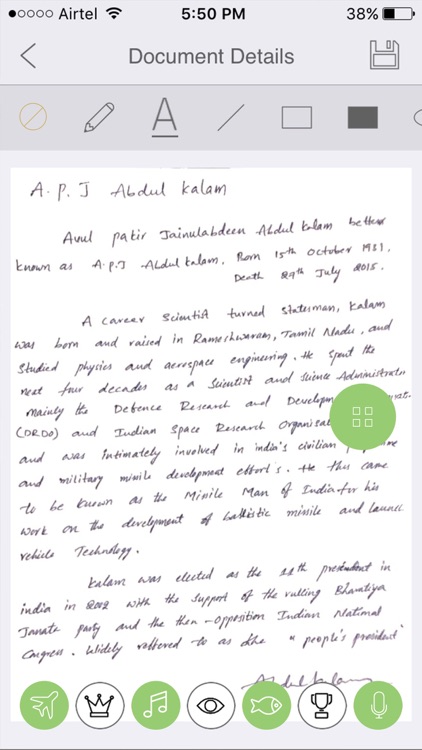 Airtel 5:50 PM 38%
Document Details
A
A.P.J Abdul Kalam
Avul pakir Jainulabdeen Abdul Kalam better
known as A.P.J Abdul Kalam, Born 15th October 1931,
Death 27th July 2015.
A career Scientist turned statesman, Kalam
was born and raised in Rameshwaram, Tamil Nadu, and
Studied physics and aerospace engineering. He spent the
next four decades as a Scientist and Science Administrator
mainly the Defence Research and
(DRDO) and Indian Space Research
and was intimately involved in india's civilian
and military missile development efforts. He thus came
to be known as the Missile Man of India for his
work on the development of ballistic missile and launch
vehicle Technology.
Kalam was elected as the 11th president in
india in 2002 with the support of the rulling Bharatiya
Janata party and the then-opposition Indian National
Congress. Widely reffered to as the "people's president"
Abdul Kalam